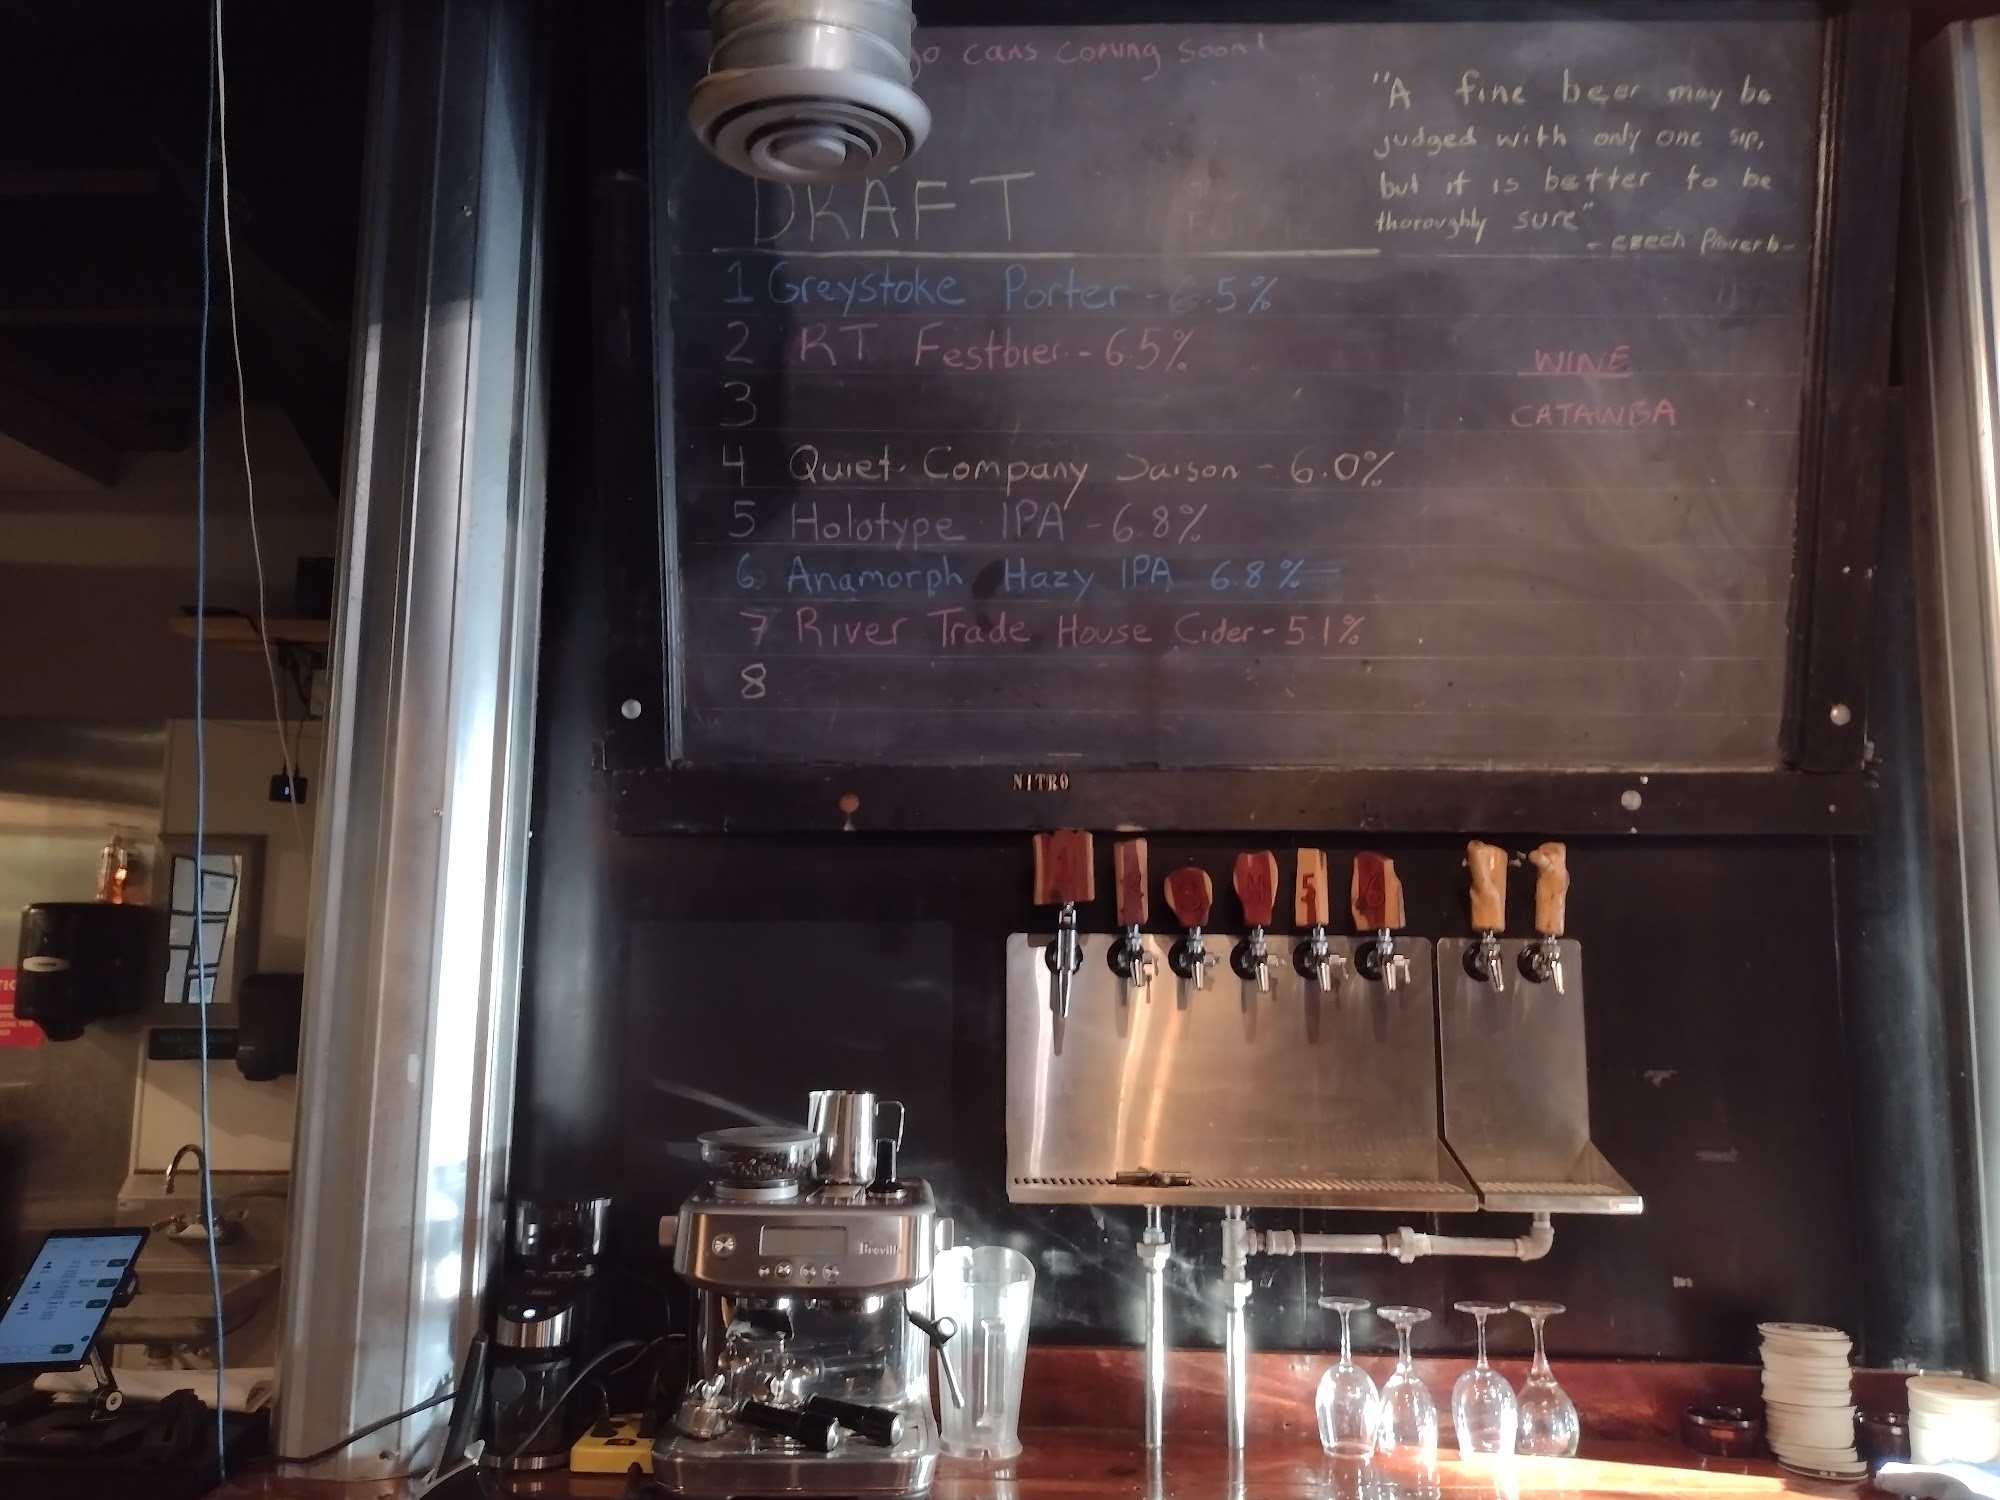 go cans coming soon!
"A fine beer may be
judged with only one sip,
but it is better to be
thoroughly sure"
- Czech Proverb -
DRAFT
1 Greystoke Porter - 6.5%
2 RT Festbier - 6.5%
3
4 Quiet Company Saison - 6.0%
5 Holotype IPA - 6.8%
6 Anamorph Hazy IPA 6.8%
7 River Trade House Cider - 5.1%
8
WINE
CATAWBA
NITRO
1
2
3
5
6
Breville